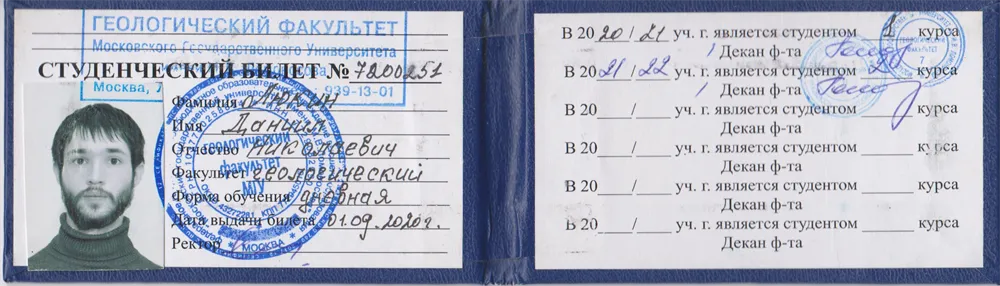 ГЕОЛОГИЧЕСКИЙ ФАКУЛЬТЕТ
Московского Государственного Университета
СТУДЕНЧЕСКИЙ БИЛЕТ № 7200251
Москва, 939-13-01
Фамилия Люкин
Имя Даниил
Отчество Николаевич
Факультет геологический
Форма обучения дневная
Дата выдачи билета 01.09.2020г.
Ректор
геологический
факультет
МГУ
МОСКВА
В 2020/21 уч. г. является студентом 1 курса
Декан ф-та
В 2021/22 уч. г. является студентом 2 курса
Декан ф-та
В 20___/___ уч. г. является студентом ______ курса
Декан ф-та
В 20___/___ уч. г. является студентом ______ курса
Декан ф-та
В 20___/___ уч. г. является студентом ______ курса
Декан ф-та
В 20___/___ уч. г. является студентом ______ курса
Декан ф-та